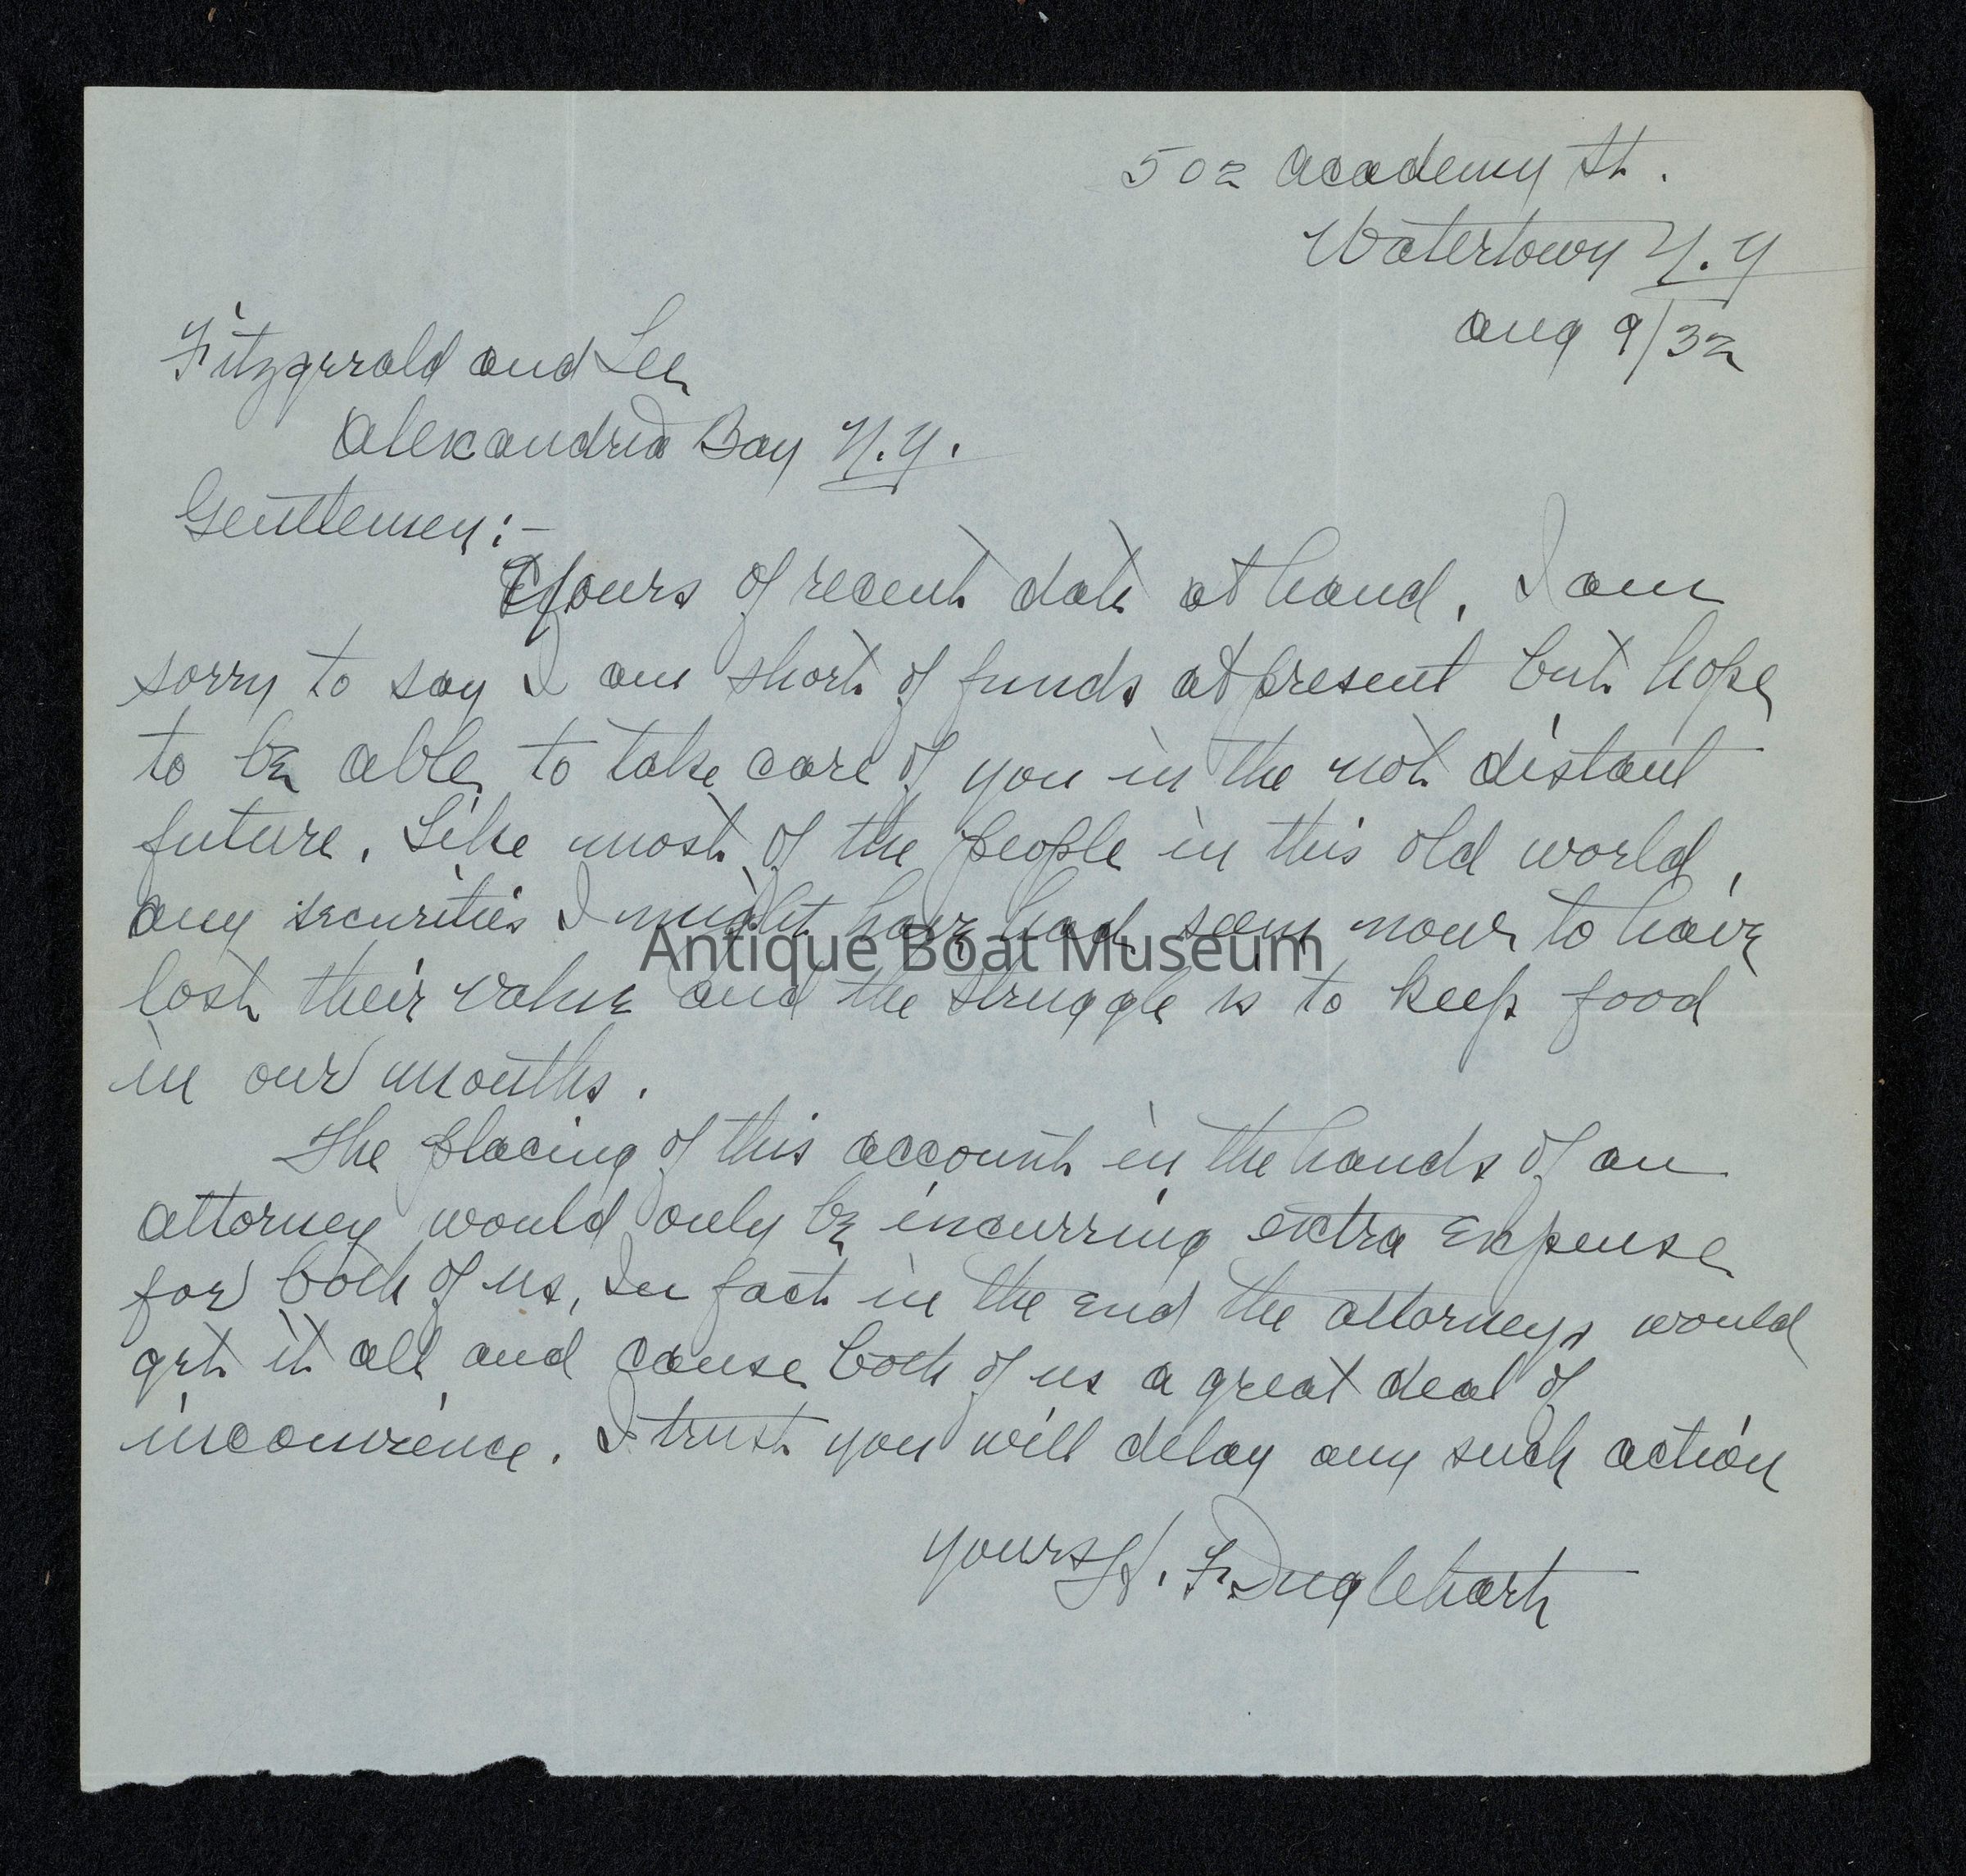 502 Academy St.
Watertown N.Y
Aug 9/32
Fitzgerald and Lee
Alexandria Bay N.Y.
Gentlemen:-
Yours of recent date at hand. I am
sorry to say I am short of funds at present but hope
to be able to take care of you in the not distant
future. Like most of the people in this old world,
any securities I might have had seem now to have
Antique Boat Museum
lost their value and the struggle is to keep food
in our mouths.
The placing of this account in the hands of an
attorney would only be incurring extra expense
for both of us, In fact in the end the attorneys would
get it all and cause both of us a great deal of
inconvience. I trust you will delay any such action
Yours H. F. Inglehart